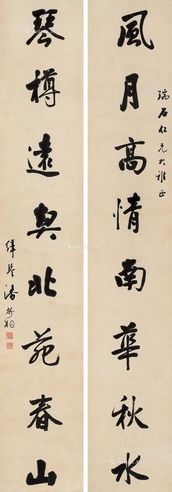 風月高情南華秋水
瑞石仁兄大雅正
琴樽遠興北苑春山
嶧琴潘衍桐